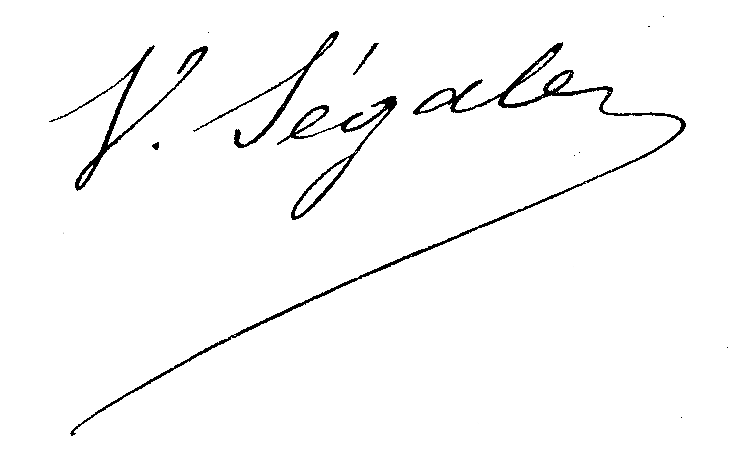 V. Ségalen